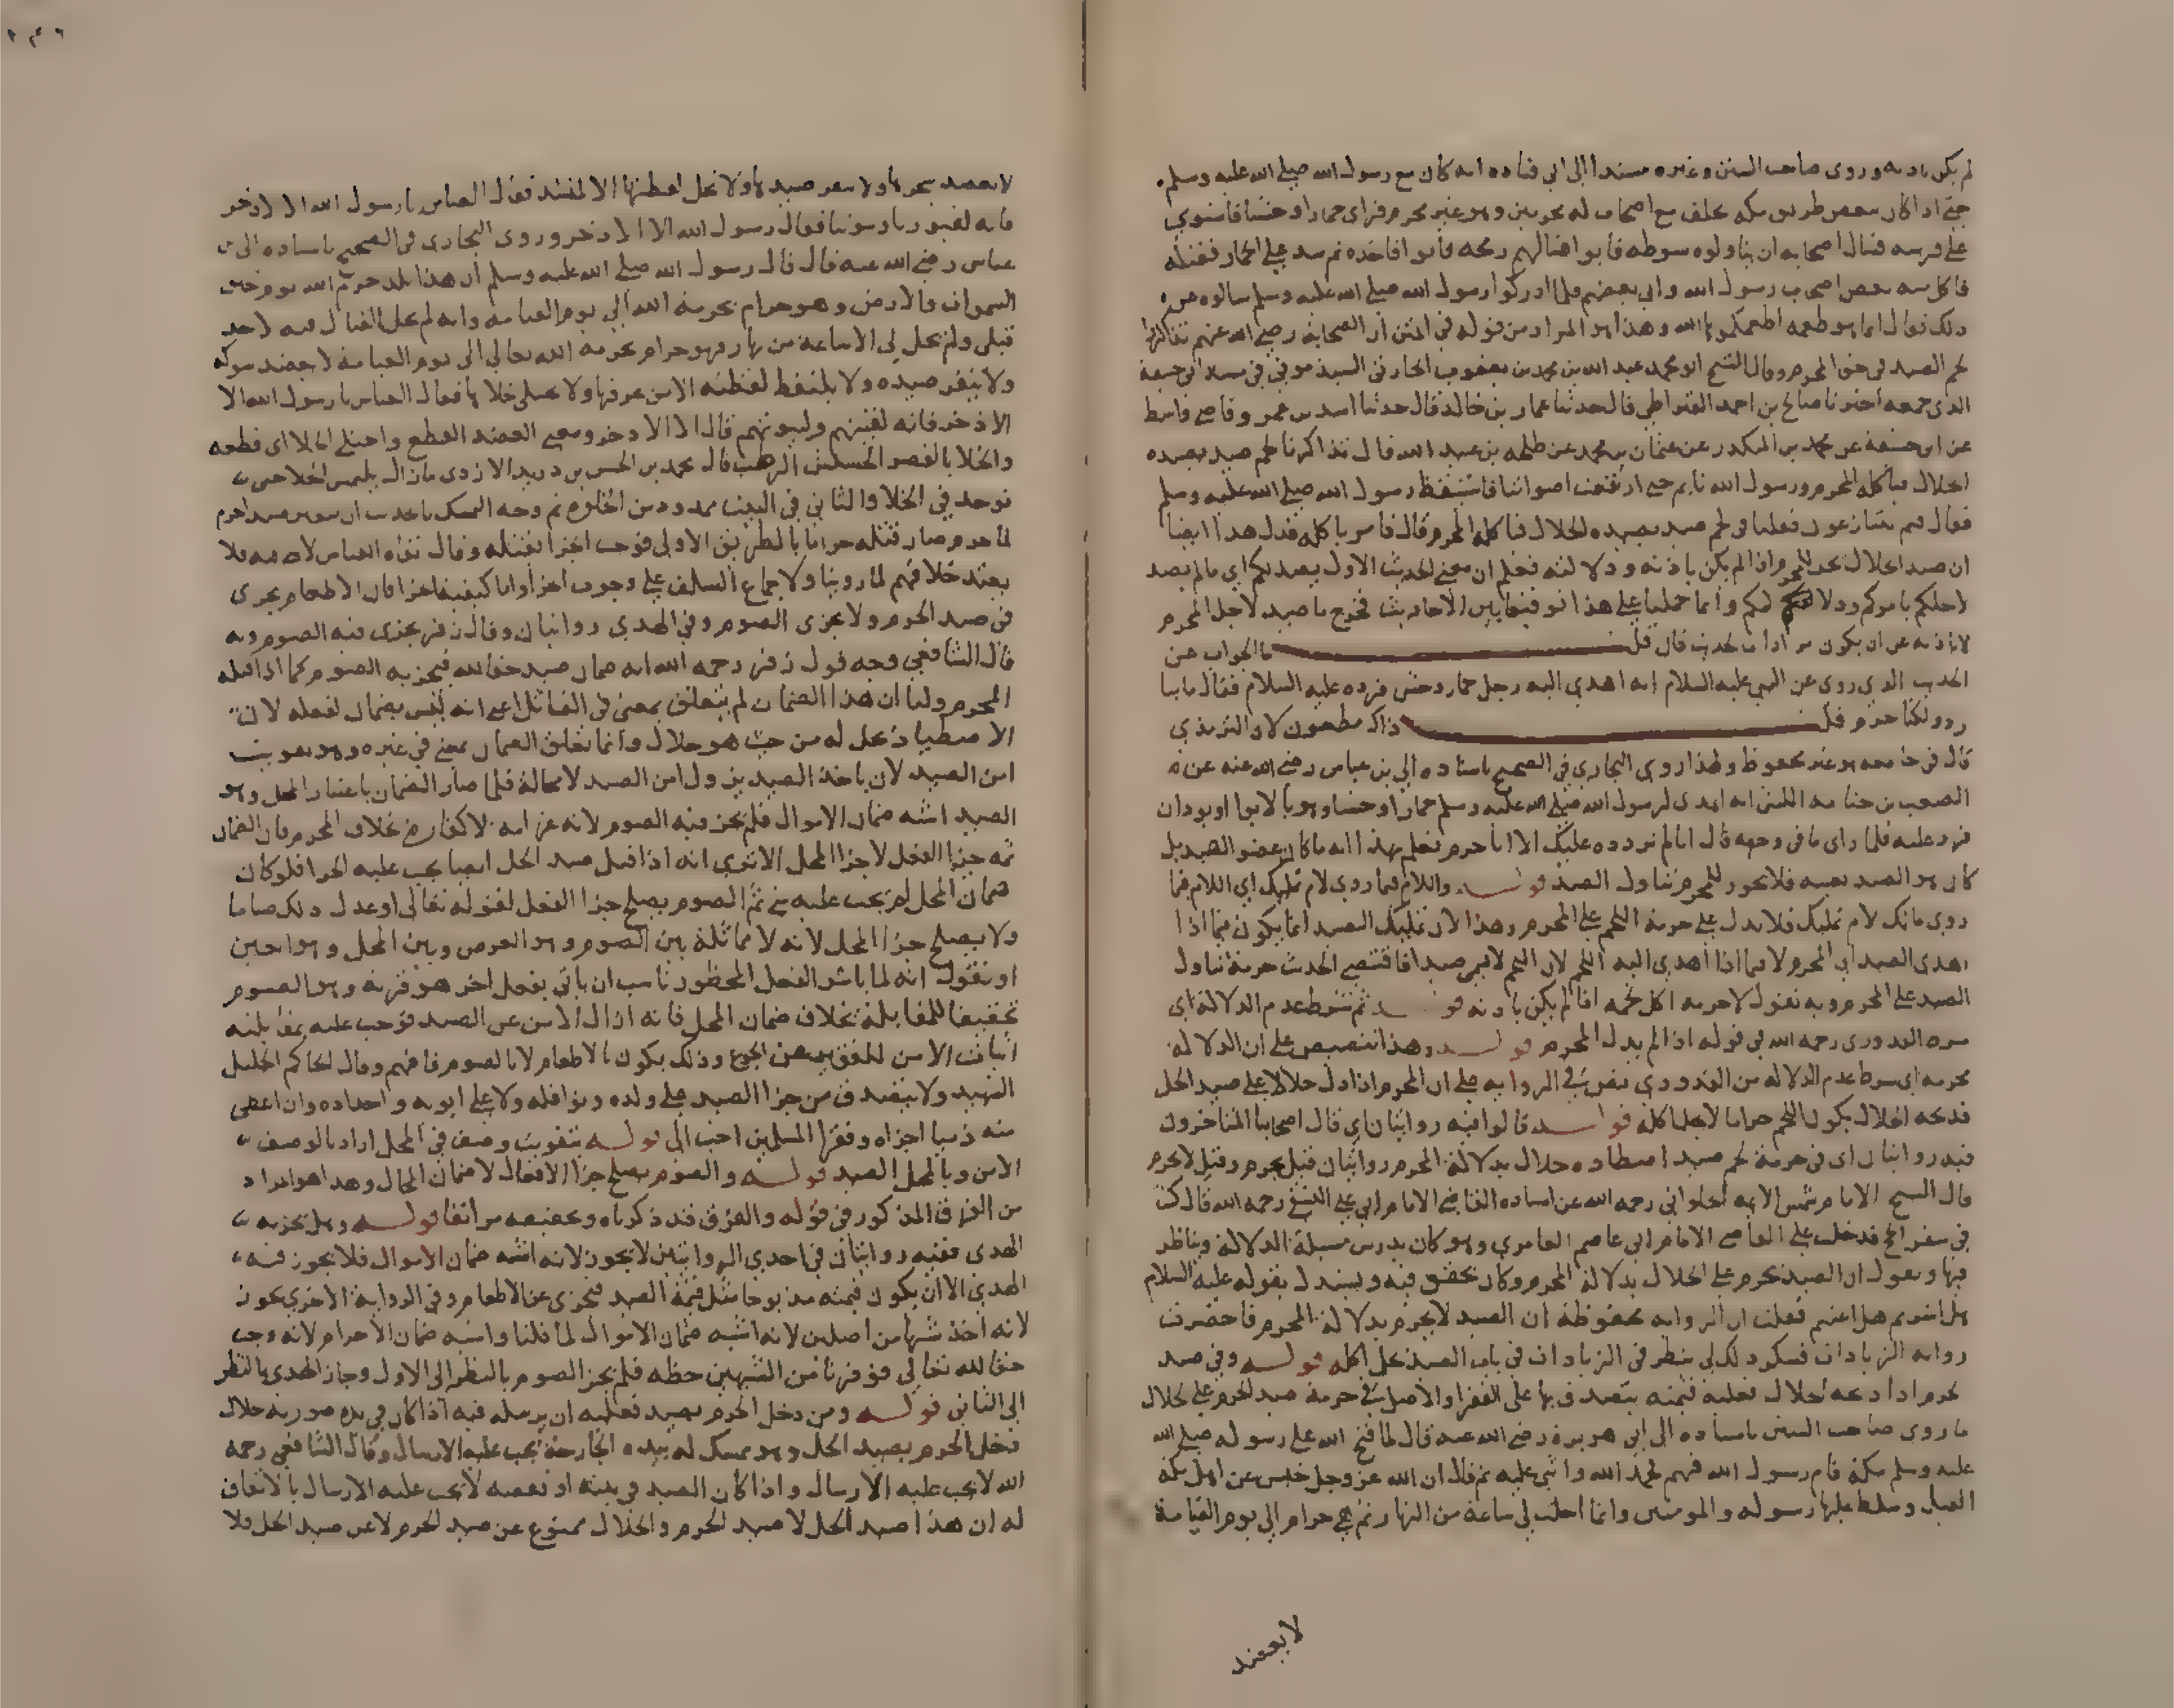 لم يكن باذنه وروى صاحب السنن وغيره مسندا الى ابي قتادة انه كان مع رسول الله صلى الله عليه وسلم
حتى اذا كان ببعض طريق مكة تخلف مع اصحاب له محرمين وهو غير محرم فراى حمارا وحشيا فاستوى
على فرسه فسال اصحابه ان يناولوه سوطه فابوا فسالهم رمحه فابوا فاخذه ثم شد على الحمار فقتله
فاكل منه بعض اصحاب رسول الله وابى بعضهم فلما ادركوا رسول الله صلى الله عليه وسلم سالوه عن
ذلك فقال انما هو طعمة اطعمكموها الله وهذا هو المراد من قوله في المتن ان الصحابة رضي الله عنهم تذاكروا
لحم الصيد في حق المحرم وقال الشيخ ابو محمد عبد الله بن محمد بن يعقوب الحارثي السبذموني في مسند ابي حنيفة
الذي جمعه اخبرنا صالح بن احمد القيراطي قال حدثنا عمار بن خالد قال حدثنا اسد بن عمرو قاضي واسط
عن ابي حنيفة عن محمد بن المنكدر عن عثمان بن محمد عن طلحة بن عبيد الله قال تذاكرنا لحم صيد يصيده
الحلال فياكله المحرم ورسول الله نايم حتى ارتفعت اصواتنا فاستيقظ رسول الله صلى الله عليه وسلم
فقال فيم تتنازعون فقلنا في لحم صيد يصيده الحلال فياكله المحرم قال فامرنا باكله فدل هذا ايضا
ان صيد الحلال يحل للمحرم اذا لم يكن باذنه ودلالته فعلم ان معنى الحديث الاول يصيد لكم اي ما لم يصد
لاجلكم بامركم ودلالتكم وانما حملنا على هذا توفيقا بين الاحاديث فخرج ما صيد لاجل المحرم
لا باذنه عن ان يكون مرادا بالحديث فان قلت ما الجواب عن
الحديث الذي روي عن النبي عليه السلام انه اهدي اليه رجل حمار وحش فرده عليه السلام فقال ما بنا
رد ولكنا حرم قلت ذاك مطعون لان الترمذي
قال في جامعه هو غير محفوظ ولهذا روى البخاري في الصحيح باسناده الى بن عباس رضي الله عنه عن
الصعب بن جثامة الليثي انه اهدى لرسول الله صلى الله عليه وسلم حمارا وحشيا وهو بالابوا او بودان
فرد عليه فلما راى ما في وجهه قال انا لم نردده عليك الا انا حرم فعلم بهذا انه ما كان عضو الصيد بل
كان هو الصيد بعينه فلا يجوز للمحرم تناول الصيد قوله واللام فيما روي لام تمليك اي اللام فيما
روى مالك لام تمليك فلا يدل على حرمة اللحم على المحرم وهذا لان تمليك الصيد انما يكون فيما اذا
اهدى الصيد الى المحرم لا فيما اذا اهدى اليه اللحم لان اللحم لا يسمى صيدا فاقتضى الحديث حرمة تناول
الصيد على المحرم وبه نقول لا حرمة اكل لحمه اذا لم يكن باذنه قوله ثم شرط عدم الدلالة اي
شرط القدوري رحمه الله في قوله اذا لم يدل المحرم قوله وهذا تنصيص على ان الدلالة
محرمة اي شرط عدم الدلالة من القدوري نص في الرواية على ان المحرم اذا دل حلالا على صيد الحل
فذبحه الحلال يكون اللحم حراما لا يحل اكله قوله قالوا فيه روايتان اي قال اصحابنا المتاخرون
فيه روايتان اي في حرمة لحم صيد اصطاده حلال بدلالة المحرم روايتان قيل يحرم وقيل لا يحرم
قال الشيخ الامام شمس الايمة الحلواني رحمه الله عن استاده القاضي الامام ابي علي النسفي رحمه الله قال كنت
في سفر الحج فدخلت على القاضي الامام ابي عاصم العامري وهو كان يدرس مسيلة الدلالة ويناظر
فيها ويقول ان الصيد يحرم على الحلال بدلالة المحرم وكان يحقق فيه ويستدل بقوله عليه السلام
هل اشرتم هل اعنتم فقلت ان الرواية محفوظة ان الصيد لا يحرم بدلالة المحرم فاحضرت
رواية الزيادات فسكن ذلك لي ينظر في الزيادات في باب الصيد يحل اكله قوله وفي صيد
الحرم اذا ذبحه الحلال فعليه قيمته يتصدق بها على الفقرا والاصل في حرمة صيد الحرم على الحلال
ما روى صاحب السنن باسناده الى ابي هريرة رضي الله عنه قال لما فتح الله على رسوله صلى الله
عليه وسلم مكة قام رسول الله فيهم فحمد الله واثنى عليه ثم قال ان الله عز وجل حبس عن اهل مكة
الفيل وسلط عليها رسوله والمومنين وانما احلت لي ساعة من النهار ثم هي حرام الى يوم القيامة
لا يعضد
١٤٦
لا يعضد شجرها ولا ينفر صيدها ولا تحل لقطتها الا لمنشد فقال العباس يا رسول الله الا الاذخر
فانه لقبورنا وبيوتنا فقال رسول الله الا الاذخر وروى البخاري في الصحيح باسناده الى بن
عباس رضي الله عنه قال قال رسول الله صلى الله عليه وسلم ان هذا بلد حرمه الله يوم خلق
السموات والارض وهو حرام بحرمة الله الى يوم القيامة وانه لم يحل القتال فيه لاحد
قبلي ولم يحل لي الا ساعة من نهار فهو حرام بحرمة الله تعالى الى يوم القيامة لا يعضد شوكه
ولا ينفر صيده ولا يلتقط لقطته الا من عرفها ولا يختلى خلاها فقال العباس يا رسول الله الا
الاذخر فانه لقينهم ولبيوتهم قال الا الاذخر ومعنى العضد القطع واختلى الخلا اي قطعه
والخلا بالقصر الحشيش الرطب قال محمد بن الحسن بن دريد الازدي
يوجد في الخلا والثاني في البيت ممدود من الخلوة ثم وجه التمسك بالحديث ان
لما حرم صار قتله حراما بالطريق الاولى فوجب الجزا بقتله وقال نفاة القياس لا ضمان فلا
يعتد خلافهم لما روينا ولاجماع السلف على وجوب الجزا واما كيفية الجزا فان الاطعام يجزي
في صيد الحرم ولا يجزى الصوم وفي الهدي روايتان وقال زفر يجزى فيه الصوم وبه
قال الشافعي وجه قول زفر رحمه الله انه ضمان صيد حقا لله فيجزيه الصوم كما اذا قتله
المحرم ولنا ان هذا الضمان لم يتعلق بمعنى في القاتل اعني انه ليس بضمان لفعله لان
الاصطياد يحل له من حيث هو حلال وانما تعلق الضمان بمعنى في غيره وهو تفويت
امن الصيد لان باخذ الصيد يزول امن الصيد لا محالة فلما صار الضمان باعتبار المحل وهو
الصيد اشبه ضمان الاموال فلم يجز فيه الصوم لانه غرامة لا كفارة بخلاف المحرم فان الضمان
ثمة جزا الفعل لا جزا المحل الا ترى انه اذا قتل صيد الحل ايضا يجب عليه الجزا فلو كان
ضمان المحل لم يجب عليه شي ثم الصوم يصلح جزا الفعل لقوله تعالى او عدل ذلك صياما
ولا يصلح جزا المحل لانه لا مماثلة بين الصوم وهو العرض وبين المحل وهو العين
او نقول انه لما باشر الفعل المحظور ناسب ان ياتي بفعل اخر هو قربة وهو الصوم
تحقيقا للمقابلة بخلاف ضمان المحل فانه ازال الامن عن الصيد فوجب عليه بمقابلته
اثبات الامن للفقير عن الجوع وذلك يكون بالاطعام لا بالصوم فافهم وقال الحاكم الجليل
الشهيد ولا يتصدق من جزا الصيد على ولده ونوافله ولا على ابويه واجداده وان اعطى
منه ذميا اجزاه وفقرا المسلمين احب الي قوله بتفويت وصف في المحل اراد بالوصف
الامن وبالمحل الصيد قوله والصوم يصلح جزا الافعال لا ضمان المحال وهذا هو المراد
من الفرق المذكور في قوله والفرق قد ذكرناه وتحقيقه مر انفا قوله وهل يجزيه
الهدي ففيه روايتان في احدى الروايتين لا يجوز لانه اشبه ضمان الاموال فلا يجوز فيه
الهدي الا ان يكون قيمته مذبوحا مثل قيمة الصيد فيجزى عن الاطعام وفي الرواية الاخرى يجوز
لانه اخذ شبها من اصلين لانه اشبه ضمان الاموال لما قلنا واشبه ضمان الاحرام لانه وجب
حقا لله تعالى فوفرنا من الشبهين حظه فلم يجز الصوم بالنظر الى الاول وجاز الهدي بالنظر
الى الثاني قوله ومن دخل الحرم بصيد فعليه ان يرسله فيه اذا كان في يده صورته حلال
دخل الحرم بصيد الحل وهو ممسك له بيده الجارحة يجب عليه الارسال وقال الشافعي رحمه
الله لا يجب عليه الارسال واذا كان الصيد في بيته او قفصه لا يجب عليه الارسال بالاتفاق
له ان هذا صيد الحل لا صيد الحرم والحلال ممنوع عن صيد الحرم لا عن صيد الحل فلا